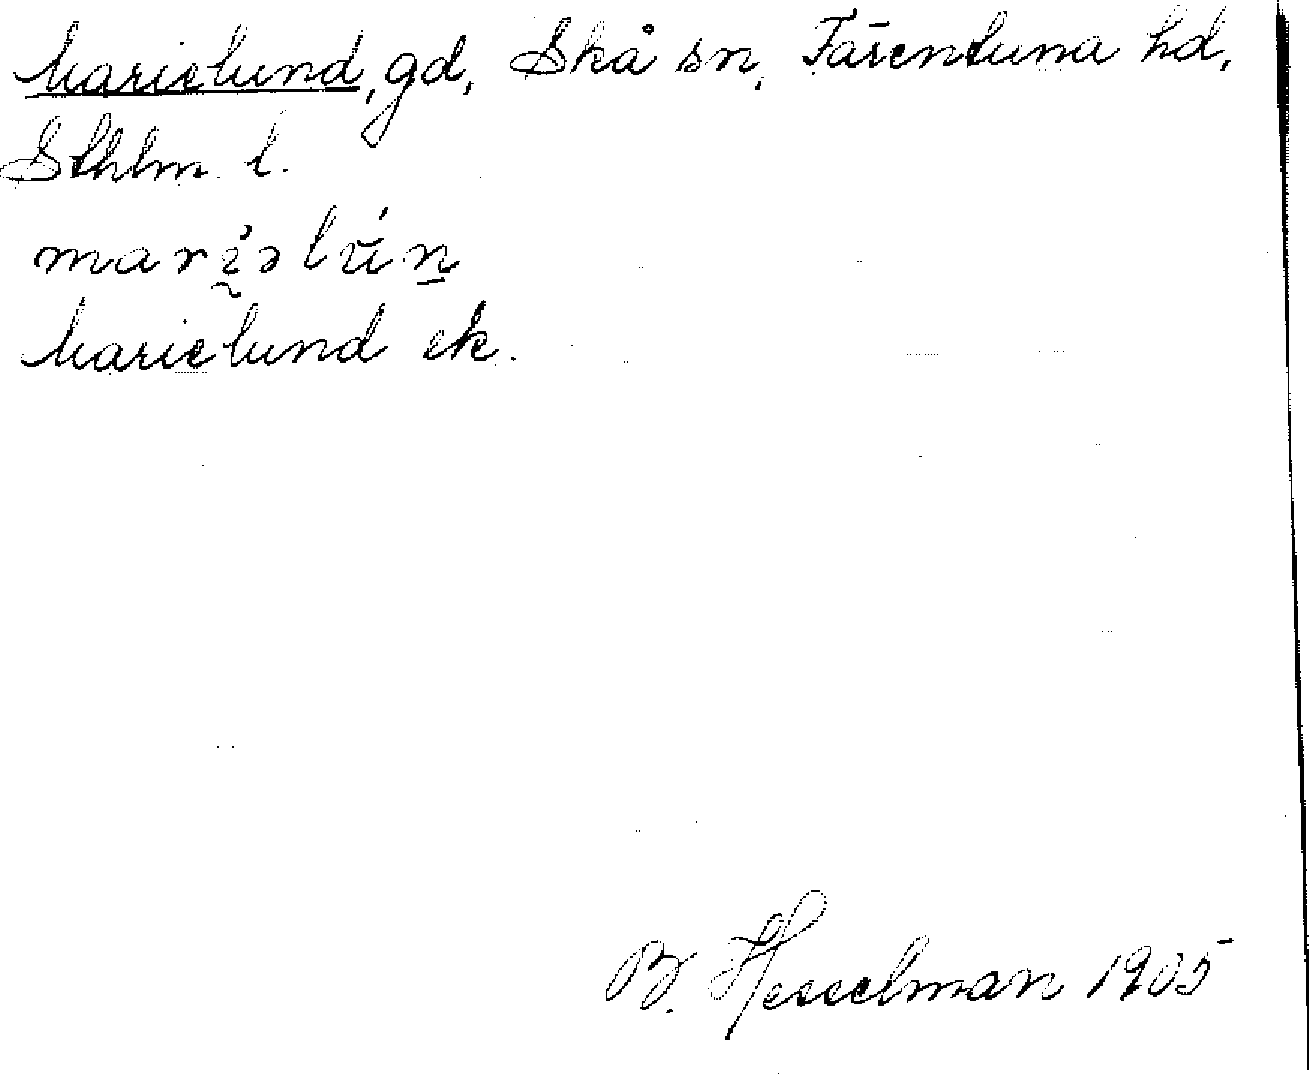 Marielund, gd, Skå sn, Färentuna hd,
Sthlm l.
Marielund ek.
B. Hesselman 1905